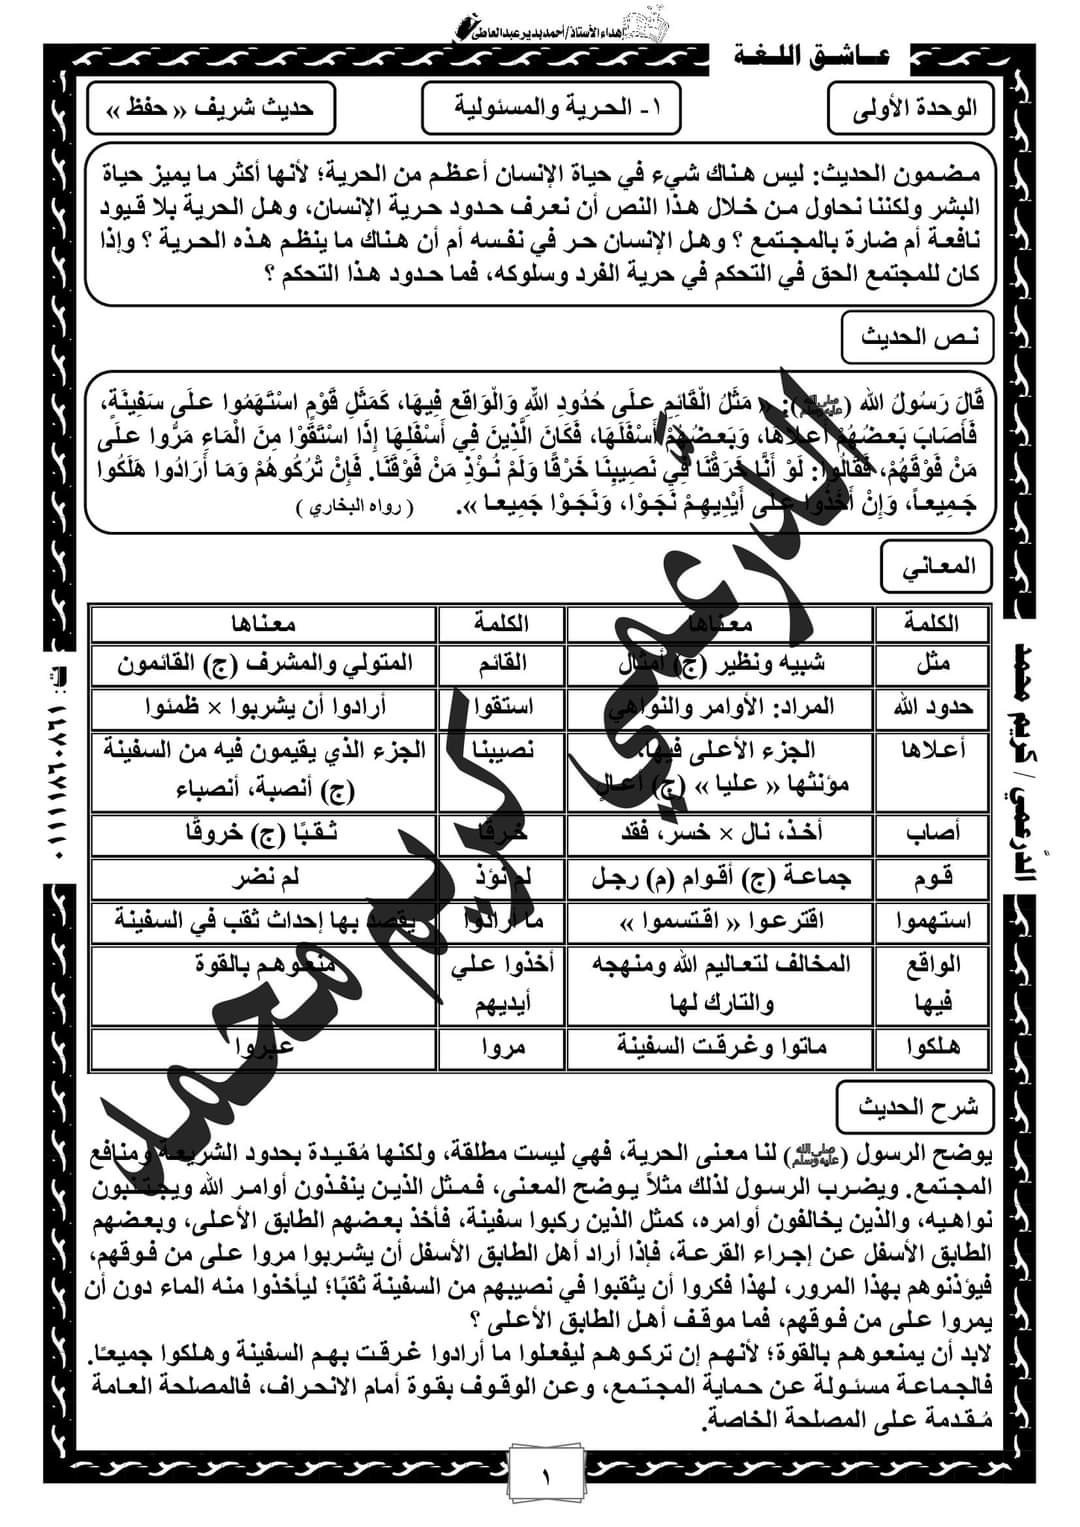 إهداء الأستاذ/أحمد بدير عبدالعاطى
عـاشـق اللـغـة
الوحدة الأولى
١- الحرية والمسئولية
حديث شريف « حفظ »
مضمون الحديث: ليس هناك شيء في حياة الإنسان أعظم من الحرية؛ لأنها أكثر ما يميز حياة
البشر ولكننا نحاول من خلال هذا النص أن نعرف حدود حرية الإنسان، وهل الحرية بلا قيود
نافعة أم ضارة بالمجتمع ؟ وهل الإنسان حر في نفسه أم أن هناك ما ينظم هذه الحرية ؟ وإذا
كان للمجتمع الحق في التحكم في حرية الفرد وسلوكه، فما حدود هذا التحكم ؟
نص الحديث
قَالَ رَسُولُ الله (ﷺ): « مَثَلُ الْقَائِمِ عَلَى حُدُودِ اللَّهِ وَالْوَاقِعِ فِيهَا، كَمَثَلِ قَوْمٍ اسْتَهَمُوا عَلَى سَفِينَةٍ،
فَأَصَابَ بَعضُهُمْ أَعْلَاهَا، وَبَعضُهُمْ أَسْفَلَهَا، فَكَانَ الَّذِينَ فِي أَسْفَلِهَا إِذَا اسْتَقَوْا مِنَ الْمَاءِ مَرُّوا عَلَى
مَنْ فَوْقَهُمْ، فَقَالُوا: لَوْ أَنَّا خَرَقْنَا فِي نَصِيبِنَا خَرْقًا وَلَمْ نُؤْذِ مَنْ فَوْقَنَا. فَإِنْ تَرَكُوهُمْ وَمَا أَرَادُوا هَلَكُوا
جَمِيعاً، وَإِنْ أَخَذُوا عَلَى أَيْدِيهِمْ نَجَوْا، وَنَجَوْا جَمِيعا ». ( رواه البخاري )
المعاني
الكلمة معناها الكلمة معناها
مثل شبيه ونظير (ج) أمثال القائم المتولي والمشرف (ج) القائمون
حدود الله المراد: الأوامر والنواهي استقوا أرادوا أن يشربوا × ظمئوا
أعلاها الجزء الأعلى فيها، نصيبنا الجزء الذي يقيمون فيه من السفينة
مؤنثها « عليا » (ج) أعالٍ (ج) أنصبة، أنصباء
أصاب أخذ، نال × خسر، فقد خرقا ثقبًا (ج) خروقًا
قوم جماعة (ج) أقوام (م) رجل لم نؤذ لم نضر
استهموا اقترعوا « اقتسموا » ما أرادوا يقصد بها إحداث ثقب في السفينة
الواقع المخالف لتعاليم الله ومنهجه أخذوا علي منعوهم بالقوة
فيها والتارك لها أيديهم
هلكوا ماتوا وغرقت السفينة مروا عبروا
شرح الحديث
يوضح الرسول (ﷺ) لنا معنى الحرية، فهي ليست مطلقة، ولكنها مُقيدة بحدود الشريعة ومنافع
المجتمع. ويضرب الرسول لذلك مثلاً يوضح المعنى، فمثل الذين ينفذون أوامر الله ويجتنبون
نواهيه، والذين يخالفون أوامره، كمثل الذين ركبوا سفينة، فأخذ بعضهم الطابق الأعلى، وبعضهم
الطابق الأسفل عن إجراء القرعة، فإذا أراد أهل الطابق الأسفل أن يشربوا مروا على من فوقهم،
فيؤذنوهم بهذا المرور، لهذا فكروا أن يثقبوا في نصيبهم من السفينة ثقبًا؛ ليأخذوا منه الماء دون أن
يمروا على من فوقهم، فما موقف أهل الطابق الأعلى ؟
لابد أن يمنعوهم بالقوة؛ لأنهم إن تركوهم ليفعلوا ما أرادوا غرقت بهم السفينة وهلكوا جميعًا.
فالجماعة مسئولة عن حماية المجتمع، وعن الوقوف بقوة أمام الانحراف، فالمصلحة العامة
مُقدمة على المصلحة الخاصة.
الدرعمي كريم محمد
الدَّرعمي / كريم محمد
: ٠١١١١٧٦٠٧٦١
١